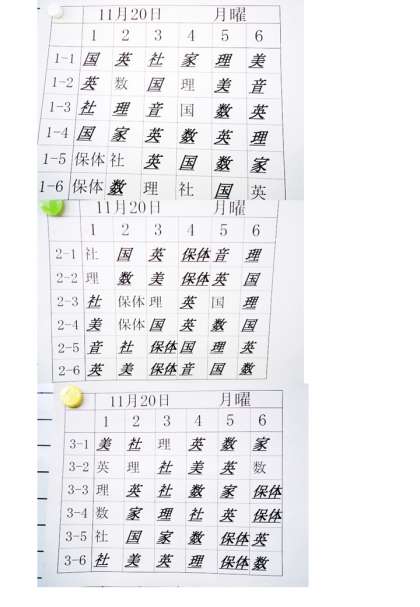 11月20日 月曜
1 2 3 4 5 6
1-1 国 英 社 家 理 美
1-2 英 数 国 理 美 音
1-3 社 理 音 国 数 英
1-4 国 家 英 数 英 理
1-5 保体 社 英 国 数 家
1-6 保体 数 理 社 国 英
11月20日 月曜
1 2 3 4 5 6
2-1 社 国 英 保体 音 理
2-2 理 数 美 保体 英 国
2-3 社 保体 理 英 国 理
2-4 美 保体 国 英 数 国
2-5 音 社 保体 国 理 英
2-6 英 美 保体 音 国 数
11月20日 月曜
1 2 3 4 5 6
3-1 美 社 理 英 数 家
3-2 英 理 社 美 英 数
3-3 理 英 社 数 家 保体
3-4 数 家 理 社 英 保体
3-5 社 国 家 数 保体 英
3-6 社 美 英 理 保体 数